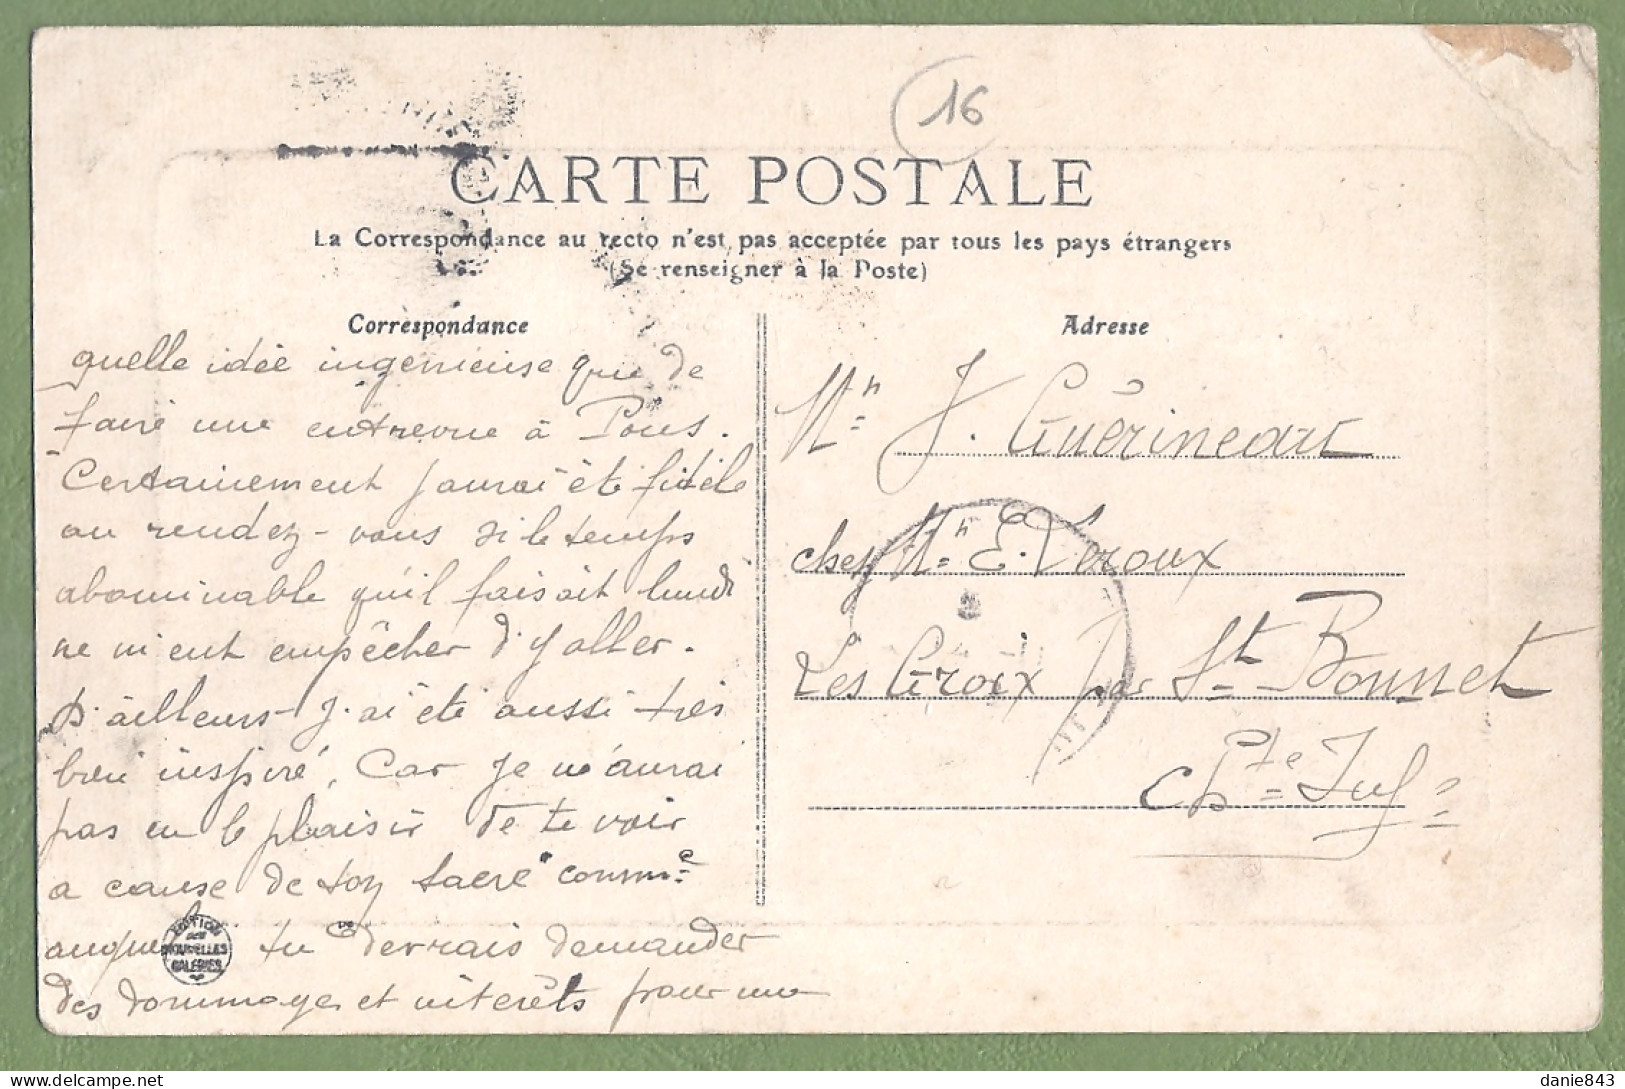 16
CARTE POSTALE
La Correspondance au recto n'est pas acceptée par tous les pays étrangers
(Se renseigner à la Poste)
Correspondance
quelle idée ingénieuse que de
faire une entrevue à Pons.
Certainement j'aurai été fidèle
au rendez-vous si le temps
abominable qu'il faisait lundi
ne m'eut empêcher d'y aller.
D'ailleurs j'ai été aussi très
bien inspiré, Car je n'aurai
pas eu le plaisir de te voir
a cause de ton sacré comm.ce
auquel tu devrais demander
des dommages et intérêts pour
EDITION
NOUVELLES
GALERIES
Adresse
J. Guérineau
chez E. Leroux
Les Groix par St Bonnet
Ch.te Inf.re
danie843